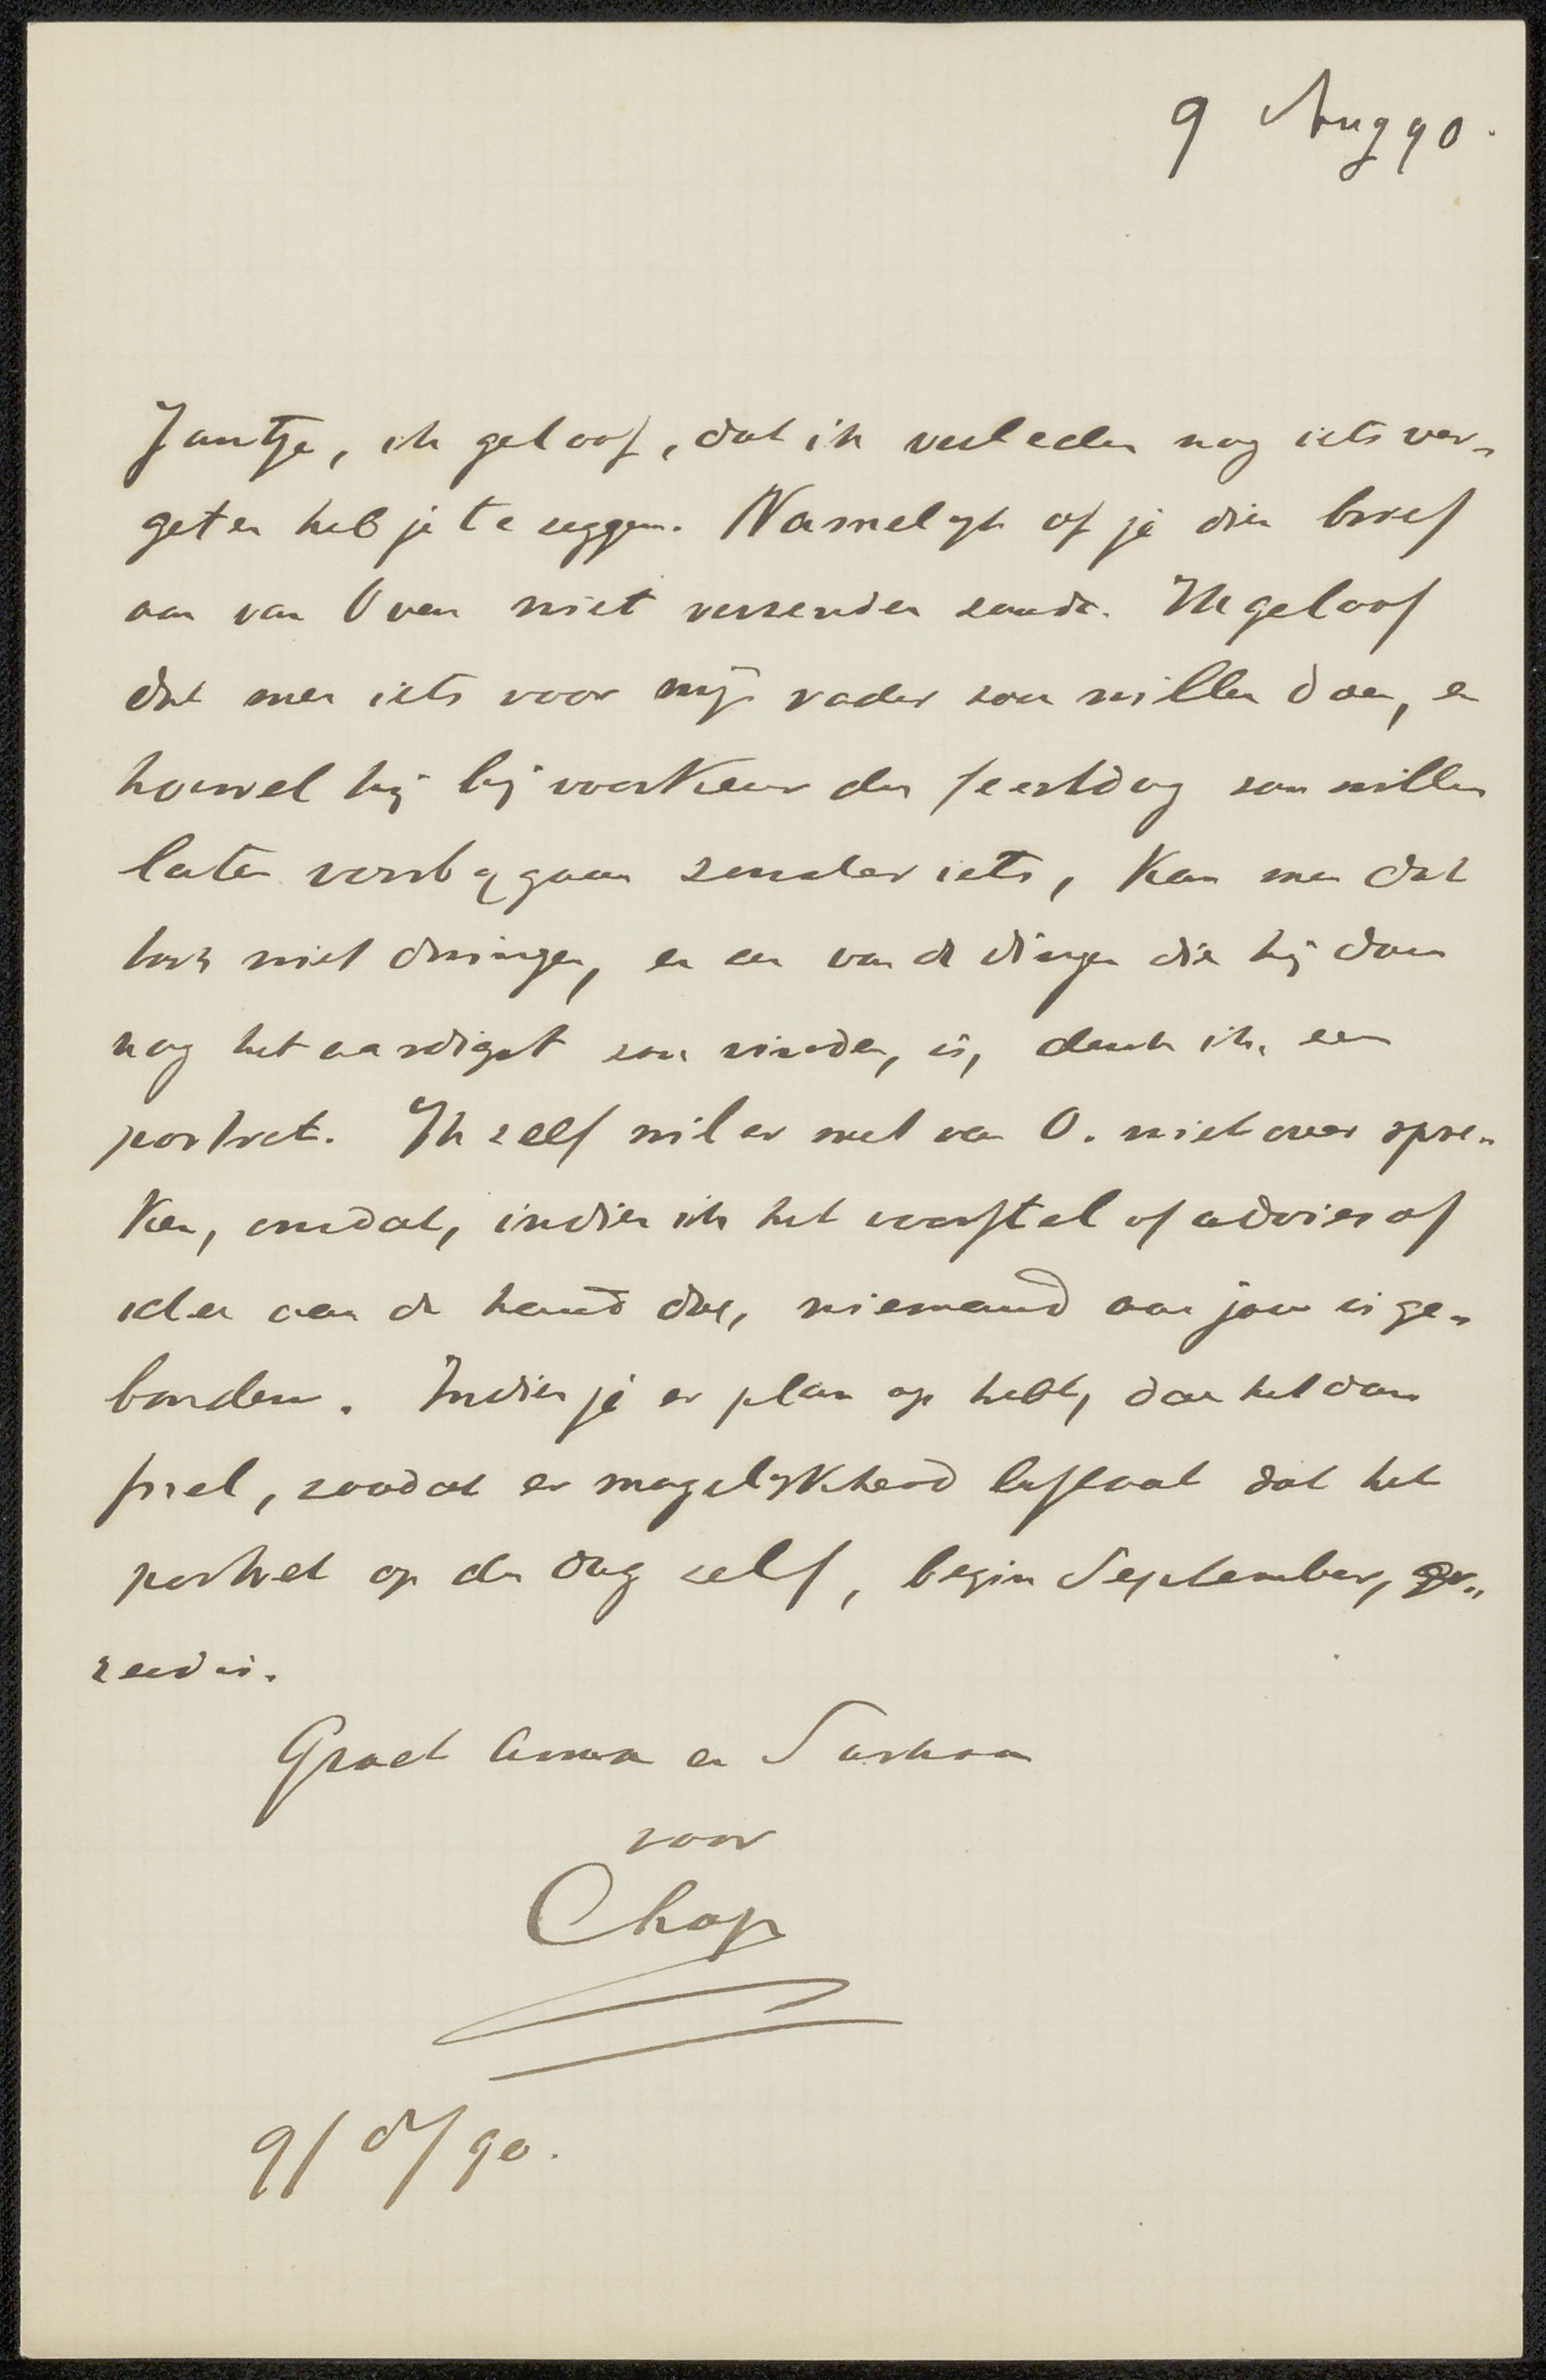 9 Aug 90.
Jantje, ik geloof, dat ik verleden nog iets ver-
geten heb je te zeggen. Namelyk of je dien brief
aan van Oven niet verzenden zoudt. Ik geloof
dat men iets voor mijn vader zou willen doen, en
hoewel hij bij voorkeur den feestdag zou willen
laten voorbygaan zonder iets, kan men dat
toch niet dwingen, en een van de dingen die hij dan
nog het aardigst zou vinden, is, denk ik, een
portret. Ik zelf wil er met van O. niet over spre-
ken, omdat, indien ik het voorstel of advies of
idee aan de hand doe, niemand aan jou is ge-
bonden. Indien je er plan op hebt, doe het dan
snel, zoodat er mogelykheid bestaat dat het
portret op den dag zelf, begin September, ge-
reed is.
Groet Anna en Saskia
voor
Chap
9/8/90.